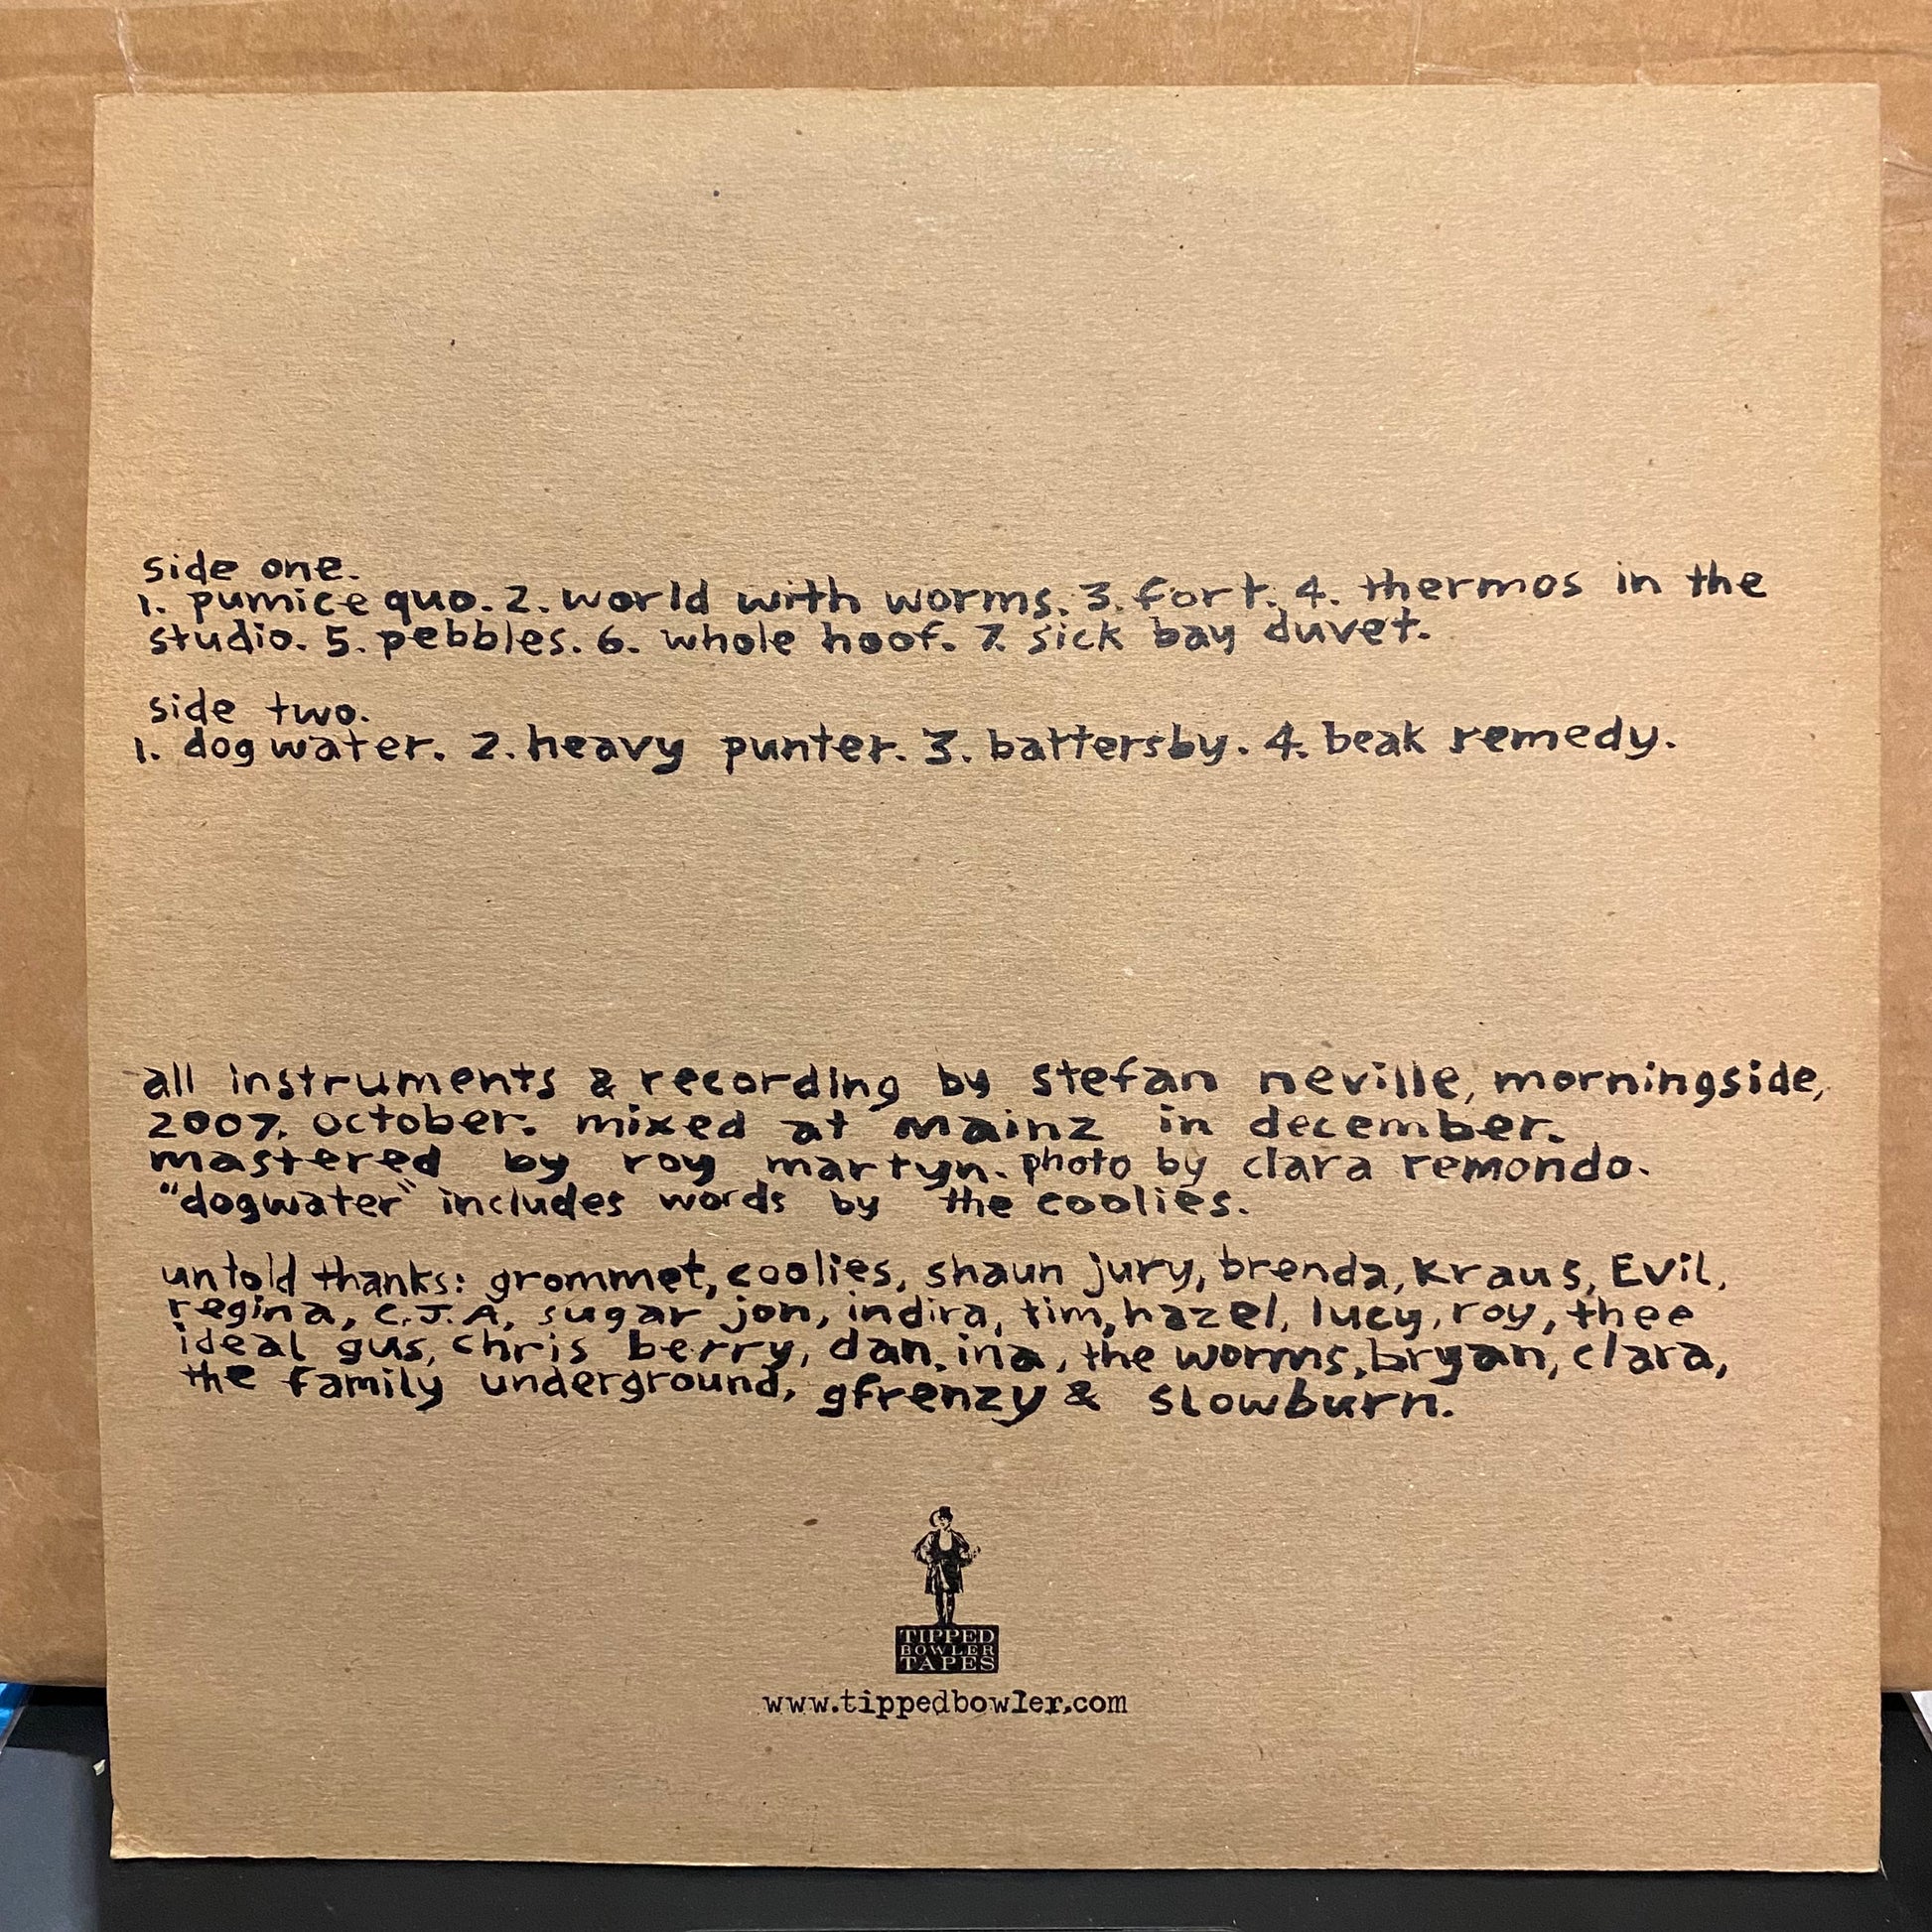 side one.
1. pumice quo. 2. world with worms. 3. fort. 4. thermos in the
studio. 5. pebbles. 6. whole hoof. 7. sick bay duvet.
side two.
1. dog water. 2. heavy punter. 3. battersby. 4. beak remedy.
all instruments & recording by stefan neville, morningside,
2007. october. mixed at mainz in december.
mastered by roy martyn. photo by clara remondo.
"dogwater" includes words by the coolies.
untold thanks: grommet, coolies, shaun jury, brenda, kraus, Evil,
regina, C.J.A, sugar jon, indira, tim, hazel, lucy, roy, thee
ideal gus, chris berry, dan, ina, the worms, bryan, clara,
the family underground, gfrenzy & slowburn.
TIPPED
BOWLER
TAPES
www.tippedbowler.com